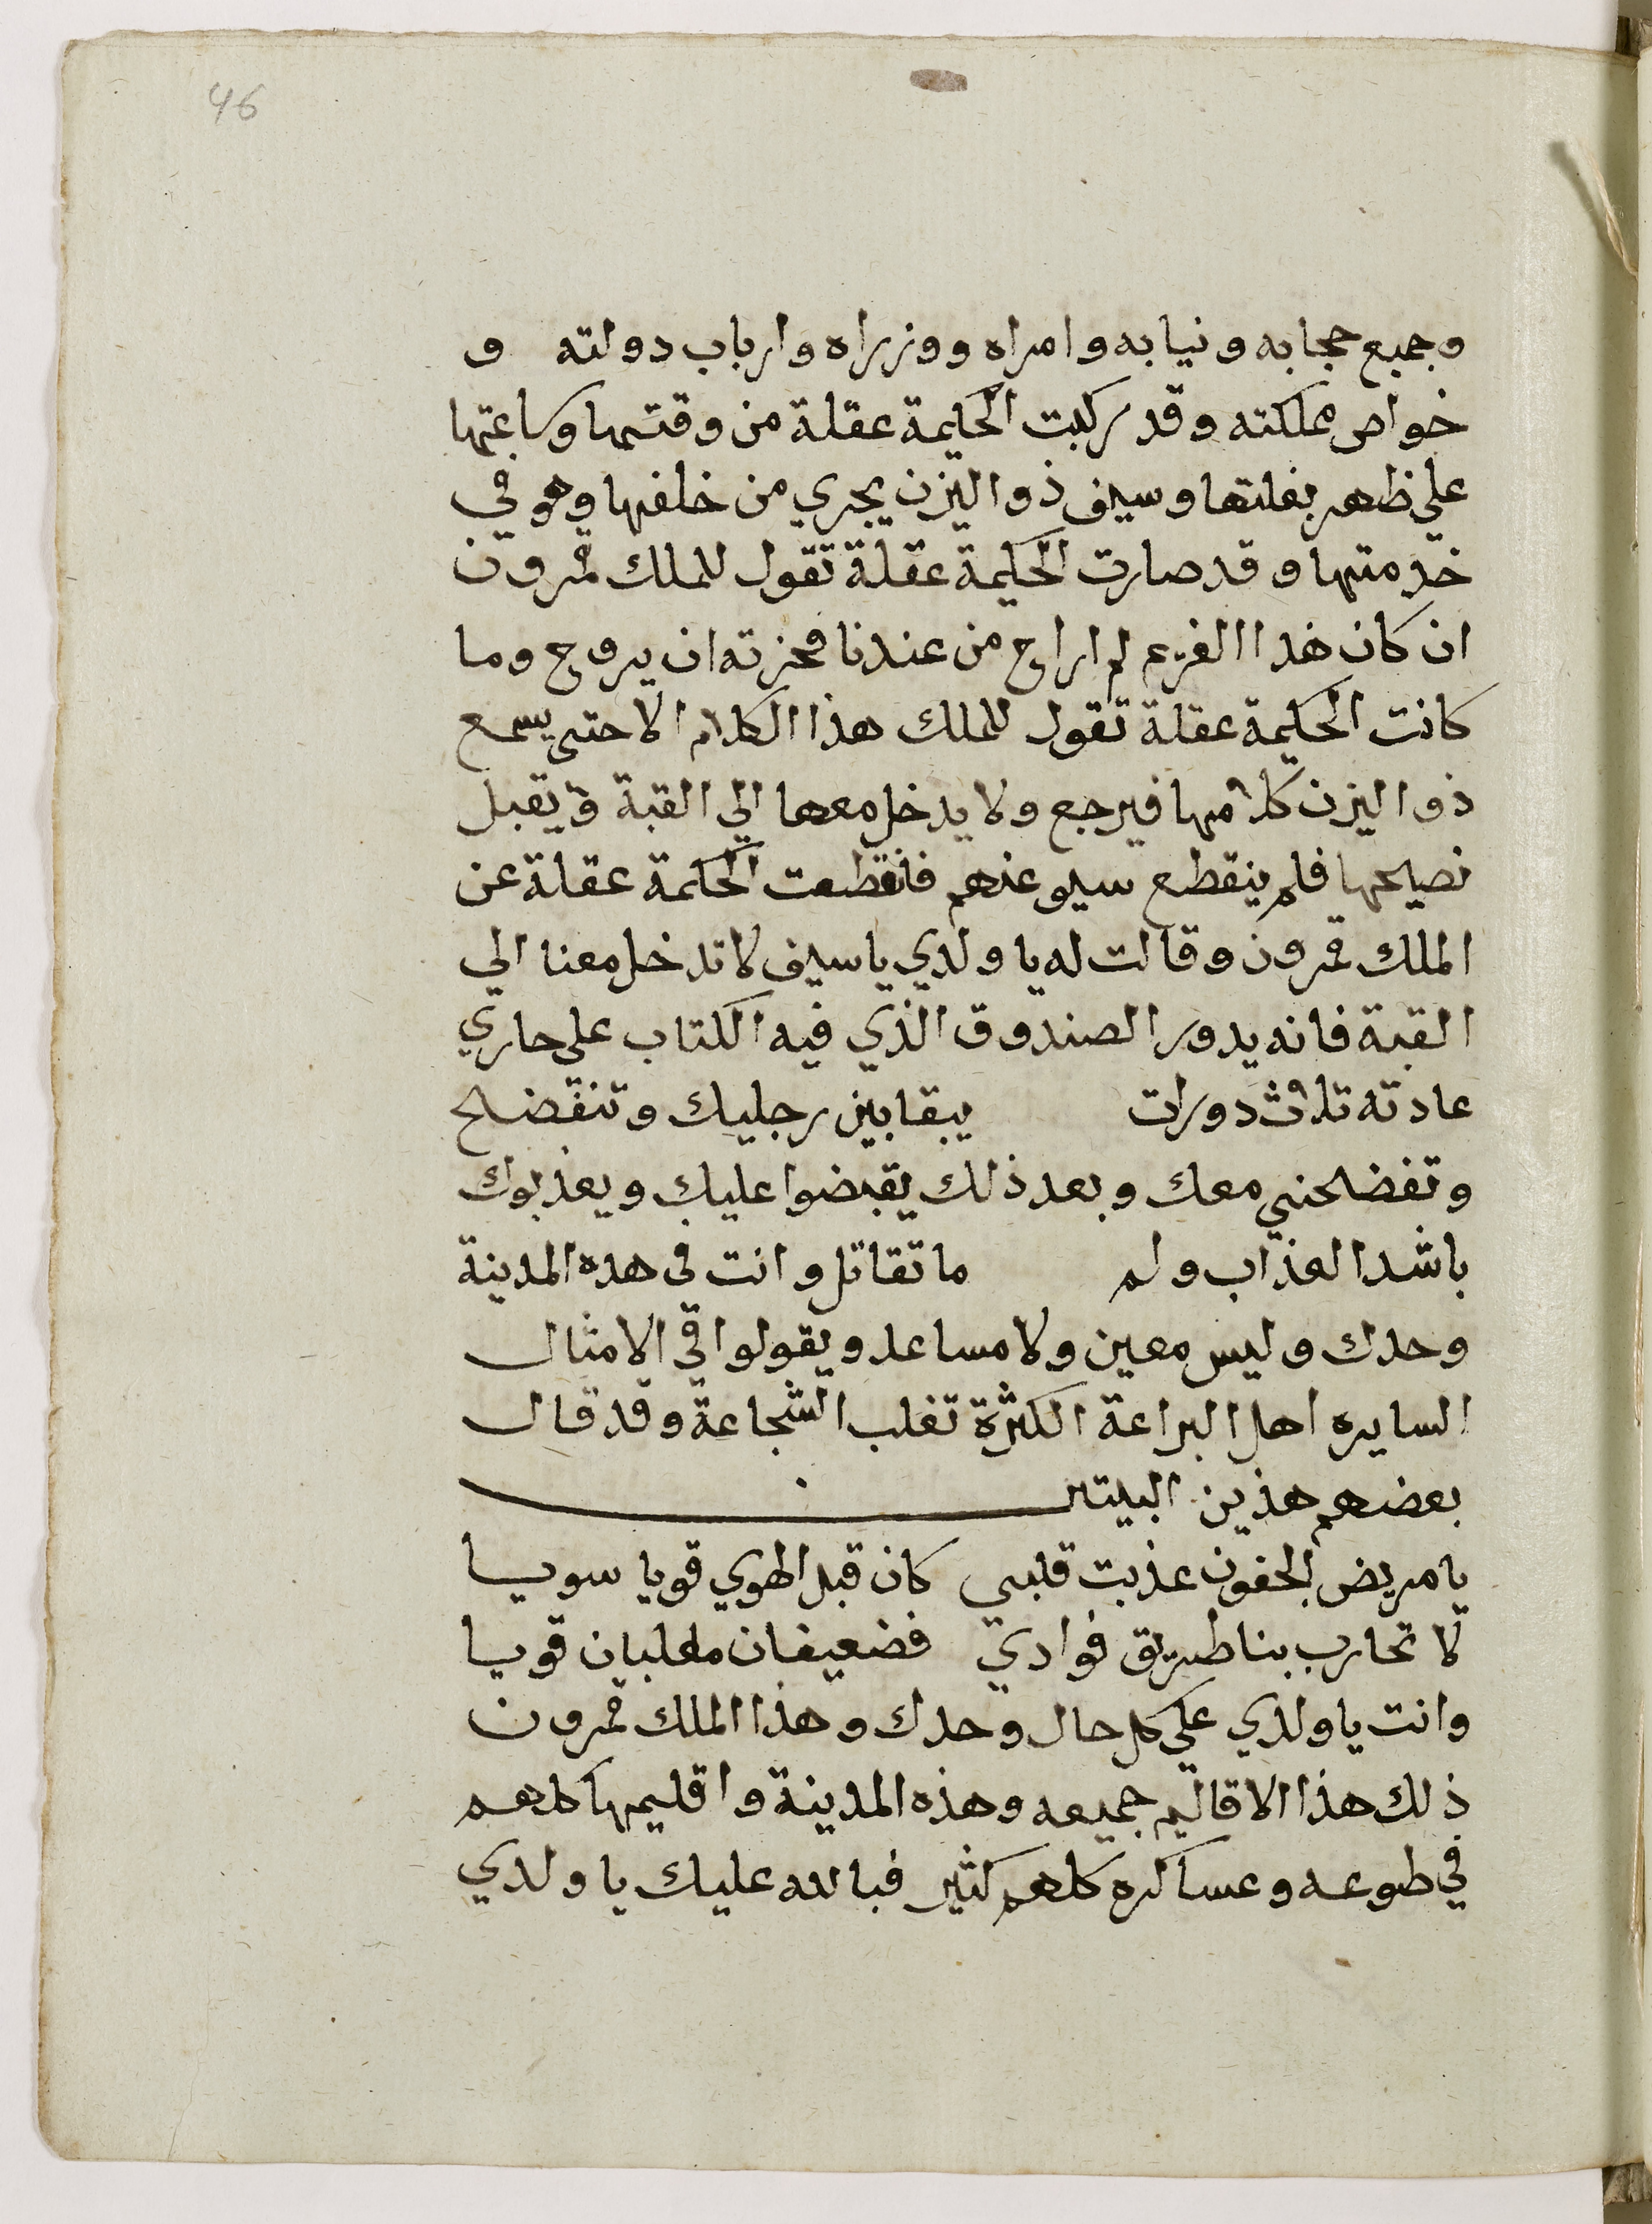 46
وجميع حجابه ونيابه وامراه ووزراه وارباب دولته و
خواص مملكته وقد ركبت الحكيمة عقلة من وقتها وساعتها
علي ظهر بغلتها وسيف ذو اليزن يجري من خلفها وهو في
خدمتها وقد صارت الحكيمة عقلة تقول للملك قمرون
ان كان هذا الغريم راح من عندنا ان يروح وما
كانت الحكيمة عقلة تقول للملك هذا الكلام الا حتى يسمع
ذو اليزن كلامها فيرجع ولا يدخل معها الي القبة ويقبل
نصيحها فلم ينقطع سيو عنهم فانقطعت الحكمة عقلة عن
الملك قمرون وقالت له يا ولدي يا سيف لا تدخل معنا الي
القبة فانه يدور الصندوق الذي فيه الكتاب على جاري
عادته تلاث دورات يبقا بين رجليك وتنفضح
وتفضحني معك وبعد ذلك يقبضوا عليك ويعذبوك
باشد العذاب ولم ما تقاتل وانت في هده المدينة
وحدك وليس معين ولا مساعد ويقولوا في الامثال
السايره اهل البراعة الكثرة تغلب الشجاعة وقد قال
بعضهم هذين البيتين
يا مريض الجفون عذبت قلبي كان قبل الهوي قويا سويا
لا تحارب بناطريق فوادي فضعيفان يغلبان قويا
وانت يا ولدي علي كل حال وحدك وهذا الملك قمرون
ذلك هذا الاقاليم جميعه وهذه المدينة واقليمها كلهم
في طوعه وعساكره كلهم كثير فبالله عليك يا ولدي